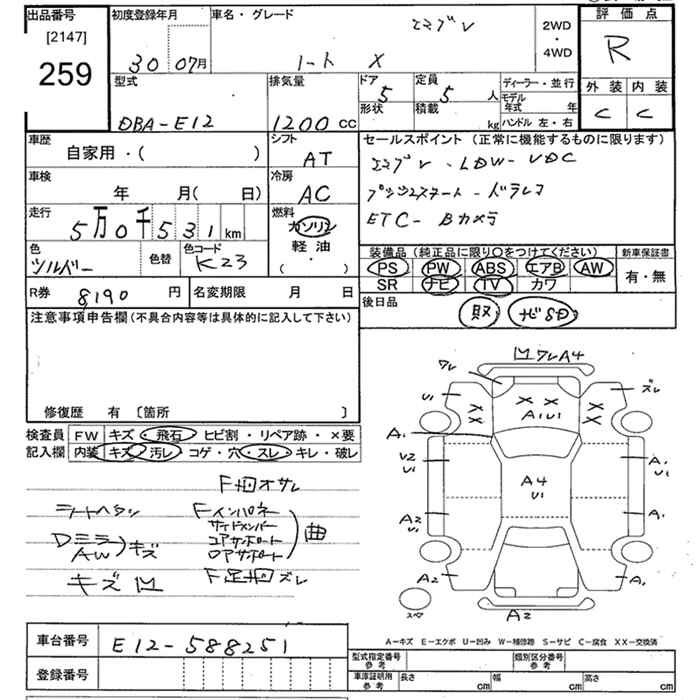 出品番号
[2147]
259
初度登録年月
30 07月
車名・グレード
エマブレ
ノート X
2WD
・
4WD
評価点
R
外装 内装
C C
型式
DBA-E12
排気量
1200 cc
ドア 5
形状
定員 5 人
積載 kg
ディーラー・並行
モデル年式 年
ハンドル 左・右
車歴
自家用・( )
シフト
AT
セールスポイント (正常に機能するものに限ります)
エマブレ・LDW- VDC
プッシュスタート-ドラレコ
ETC- Bカメラ
車検
年 月( 日)
冷房
AC
走行
5万0千531km
燃料
ガソリン
軽油
・
( )
色
シルバー
色替
色コード
K23
装備品 (純正品に限り〇をつけてください)
PS PW ABS エアB AW
SR ナビ TV カワ
新車保証書
有・無
R券 8190 円
名変期限 月 日
後日品
取 ナビSD
注意事項申告欄(不具合内容等は具体的に記入して下さい)
修復歴 有 〔箇所 〕
検査員記入欄
FW キズ・飛石・ヒビ割・リペア跡・×要
内装 キズ・汚レ・コゲ・穴・スレ・キレ・破レ
シートヘタリ
Dミラー
AW
キズ
キズ凹
F凹オサレ
Fインパネ
サイドメンバー
コアサポート
ロアサポート
曲
F足回ズレ
凹ワレA4
ワレ
U1
ズレ
A1U1
A1
U2
U1
A4
U1
A1
U1
A2
U1
A1
A2
A1
A2
スペア
A-キズ E-エクボ U-凹み W-補修跡 S-サビ C-腐食 XX-交換済
車台番号 E12-588251
登録番号
型式指定番号
参考
類別区分番号
参考
車庫証明用
参考
長さ cm
幅 cm
高さ cm